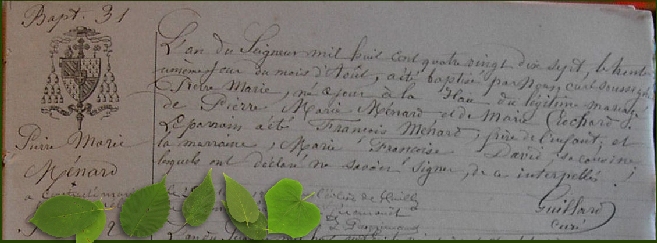 Bapt. 31
Pierre Marie
Ménard
L'an du Seigneur mil huit cent quatre vingt dix sept, le trente
unième jour du mois d'Août, a été baptisé par Nous, curé soussigné
Pierre Marie, né ce jour à la du légitime mariage
de Pierre Marie Ménard et de Marie Crochard.
Le parrain a été François Ménard, frère de l'enfant, et
la marraine, Marie Françoise David, sa cousine,
lesquels ont déclaré ne savoir signer, de ce interpellés.
Guillard
Curé